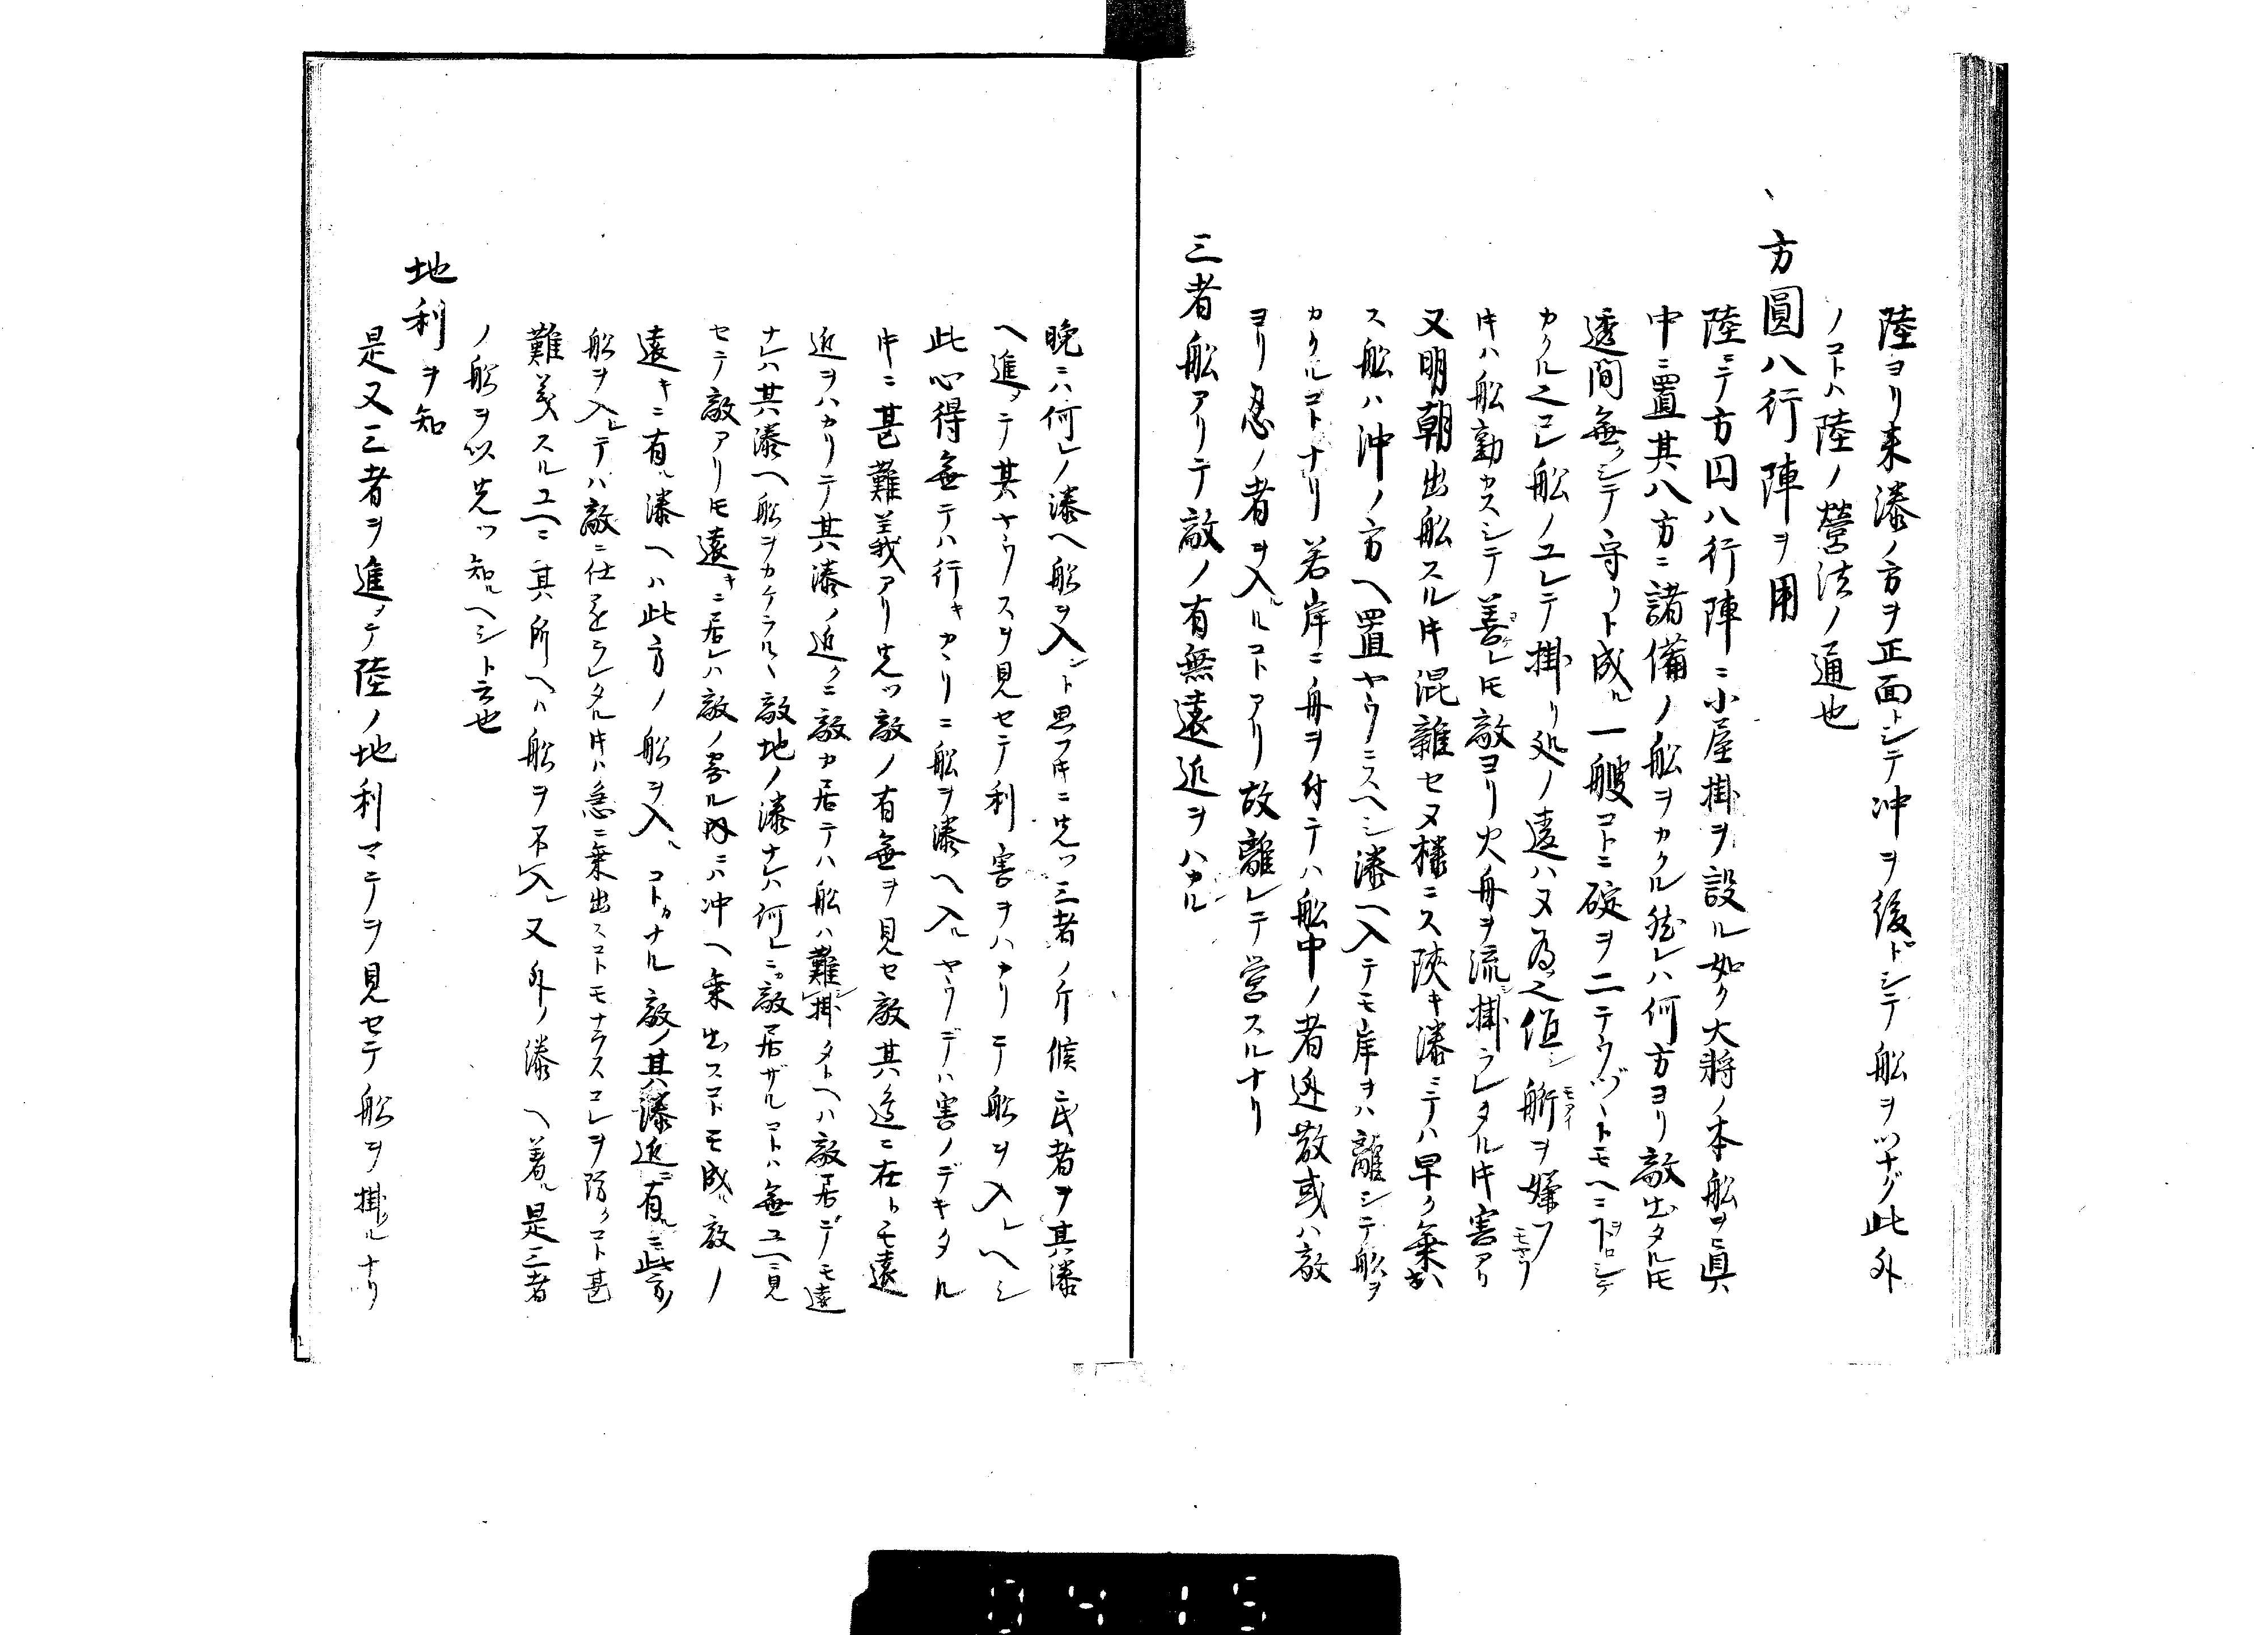 陸ヨリ来湊ノ方ヲ正面トシテ冲ヲ後ドシテ船ヲツナグ此外
ノコトハ陸ノ營法ノ通也
方圓八行陣ヲ用
陸ニテ方円八行陣ニ小屋掛ヲ設ル如ク大將ノ本船ヲ真
中ニ置其八方ニ諸備ノ船ヲカクル然レハ何方ヨリ敵出タルトモ
透間無クシテ守リト成ル一艘コトニ碇ヲ二テウヅヽトモヘニヲロシテ
カクル之コレ船ノユレテ掛リ処ノ違ハヌ為之但シ舫ヲ嫌フ
時ハ船動カスシテ善レトモ敵ヨリ火舟ヲ流掛ラレタル時害アリ
又明朝出船スル時混雜セヌ様ニス陜キ湊ニテハ早ク乗出
ス船ハ沖ノ方ヘ置ヤウニスヘシ湊ヘ入テモ岸ヲハ離シテ船ヲ
カクルコトナリ若岸ニ舟ヲ付テハ船中ノ者迯散或ハ敵
ヨリ忍ノ者ヲ入ルコトアリ故離レテ営スルナリ
三者船アリテ敵ノ有無遠近ヲハカル
晩ニハ何レノ湊ヘ船ヲ入ント思フ時ニ先ツ三者ノ斤候 者ヲ其湊
ヘ進テ其ヤウスヲ見セテ利害ヲハカリテ船ヲ入レヘシ
此心得無テハ行キカヽリニ船ヲ湊ヘ入ルヤウデハ害ノデキタル
時ニ甚難義アリ先ツ敵ノ有無ヲ見セ敵其邊ニ在トモ遠
近ヲハカリテ其湊ノ近クニ敵カ居テハ船ハ難掛タトヘハ敵居デモ遠
ナレハ其湊ヘ船ヲカケラルヽ敵地ノ湊ナレハ何レニカ敵居ザルコトハ無ユヘニ見
セテ敵アリトモ遠キニ居レハ敵ノ寄ル内ニハ冲ヘ乗出スコトモ成ル敵ノ
遠キニ有ル湊ヘハ此方ノ船ヲ入ルコトカナル敵ノ其湊近ニ有ルニ此方ノ
船ヲ入レテハ敵ニ仕 ラレタル時ハ急ニ乗出スコトモナラスコレヲ防クコト甚
難義スルユヘニ其所ヘハ船ヲ不入レ又外ノ湊ヘ着ル是三者
ノ船ヲ以先ツ知ルヘシト云也
地利ヲ知
是又三者ヲ進テ陸ノ地利マテヲ見セテ船ヲ掛クルナリ